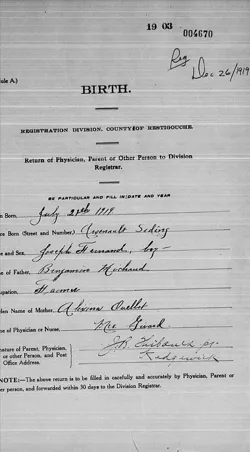 19 03
004670
Reg
Dec 26/1919
ule A.)
BIRTH.
REGISTRATION DIVISION, COUNTY OF RESTIGOUCHE.
Return of Physician, Parent or Other Person to Division
Registrar.
BE PARTICULAR AND FILL IN DATE AND YEAR
n Born, July 1919
ere Born (Street and Number) Arsenault Siding
e and Sex, Joseph Fernand, boy
e of Father, Benjamin Michaud
upation, Farmer
iden Name of Mother, Albina Ouellet
e of Physician or Nurse, Mrs
nature of Parent, Physician,
or other Person, and Post
Office Address.
J.B.
Kedgwick
NOTE:—The above return is to be filled in carefully and accurately by Physician, Parent or
er person, and forwarded within 30 days to the Division Registrar.